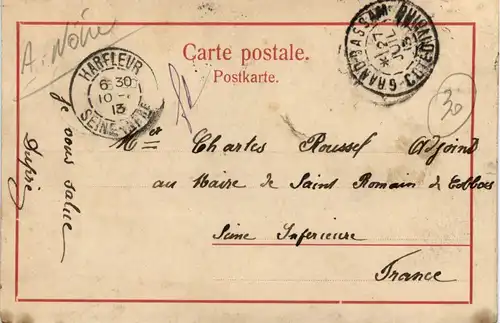 A. Noire
Carte postale.
Postkarte.
HARFLEUR
6 30
10 -
13
SEINE-INFRE
GRAND-BASSAM
27
30
Mr et Charles Roussel Adjoint
au Maire de Saint Romain de Colbosc
Seine Inferieure
France
Je vous salue
Dupré